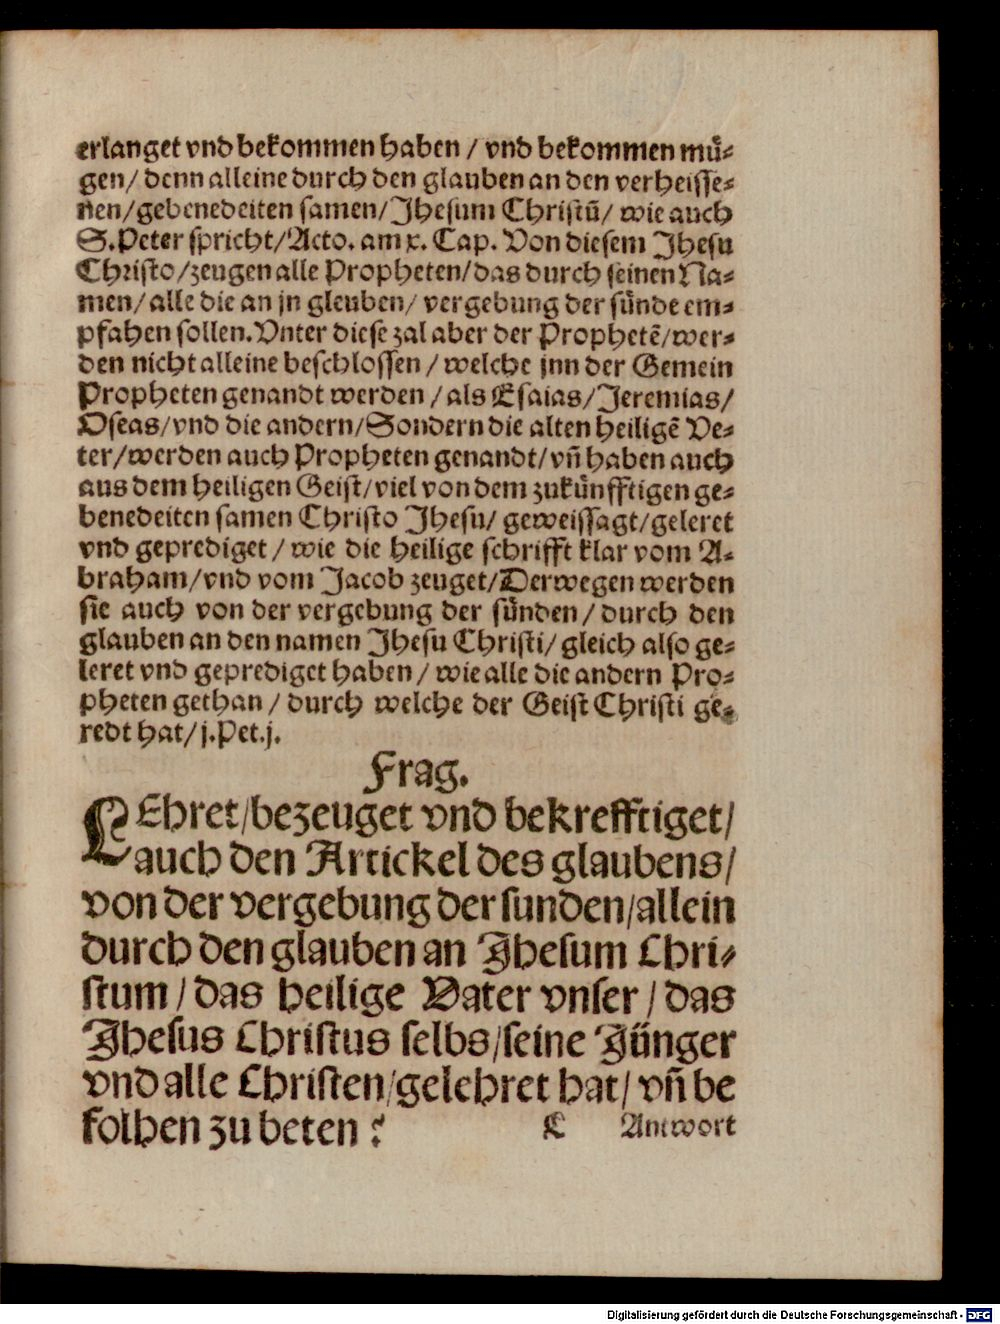 erlanget vnd bekommen haben / vnd bekommen mü⸗
gen/ denn alleine durch den glauben an den verheisse⸗
nen/gebenedeiten samen/Jhesum Christū/ wie auch
S.Peter spricht/Acto. am x. Cap. Von diesem Jhesu
Christo/zeugen alle Propheten/das durch seinen Na⸗
men/alle die an jn gleuben/ vergebung der sünde em⸗
pfahen sollen.Vnter diese zal aber der Prophetē/wer⸗
den nicht alleine beschlossen / welche jnn der Gemein
Propheten genandt werden / als Esaias/Jeremias/
Oseas/vnd die andern/Sondern die alten heiligē Ve⸗
ter/werden auch Propheten genandt/vn̄ haben auch
aus dem heiligen Geist/viel von dem zukünfftigen ge⸗
benedeiten samen Christo Jhesu/ geweissagt/geleret
vnd geprediget / wie die heilige schrifft klar vom A⸗
braham/vnd vom Jacob zeuget/Derwegen werden
sie auch von der vergebung der sünden/ durch den
glauben an den namen Jhesu Christi/ gleich also ge⸗
leret vnd geprediget haben / wie alle die andern Pro⸗
pheten gethan / durch welche der Geist Christi ge⸗
redt hat/ j.Pet.j.
Frag.
LEhret/bezeuget vnd bekrefftiget/
auch den Artickel des glaubens/
von der vergebung der sunden/allein
durch den glauben an Jhesum Chri⸗
stum / das heilige Vater vnser / das
Jhesus Christus selbs/seine Jünger
vnd alle Christen/gelehret hat/ vn̄ be
folhen zu beten ?
C Antwort
Digitalisierung gefördert durch die Deutsche Forschungsgemeinschaft - DFG